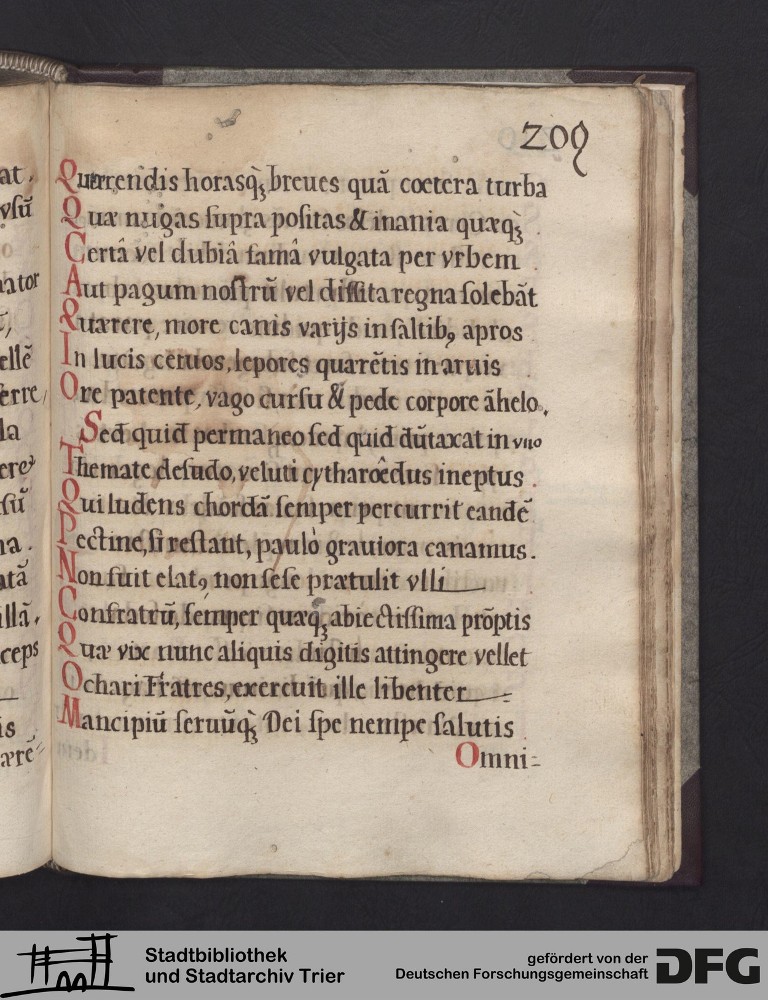 209
Quærendis horasq̀ꝫ breues quã coetera turba
Quæ nugas ſupra poſitas & inania quæq̀ꝫ
Certâ vel dubiâ famâ vulgata per vrbem .
Aut pagum noſtrũ vel diſſita regna ſolebãt
Quærere, more canis varijs in ſaltibꝰ apros
In lucis ceruos, lepores quærẽtis in aruis
Ore patente, vago curſu & pede corpore ãhelo.
Sed quid permaneo ſed quid dũtaxat in vno
Themate deſudo, veluti cytharoêdus ineptus .
Qui ludens chordã ſemper percurrit eandẽ
Pectine, ſi reſtant, paulò grauiora canamus .
Non fuit elatꝰ, non ſeſe prætulit vlli
Confratrũ, ſemper quæq̀ꝫ abiectiſſima prõptis
Quæ vix nunc aliquis digitis attingere vellet
O chari Fratres, exercuit ille libenter
Mancipiũ ſeruũq̀ꝫ Dei ſpe nempe ſalutis
Omni=
at.
vſũ
nator
ellẽ
ferre,
la
ere
ſũ
na .
atã
illã,
ceps
is
ærẽ=
Stadtbibliothek
und Stadtarchiv Trier
gefördert von der
Deutschen Forschungsgemeinschaft
DFG